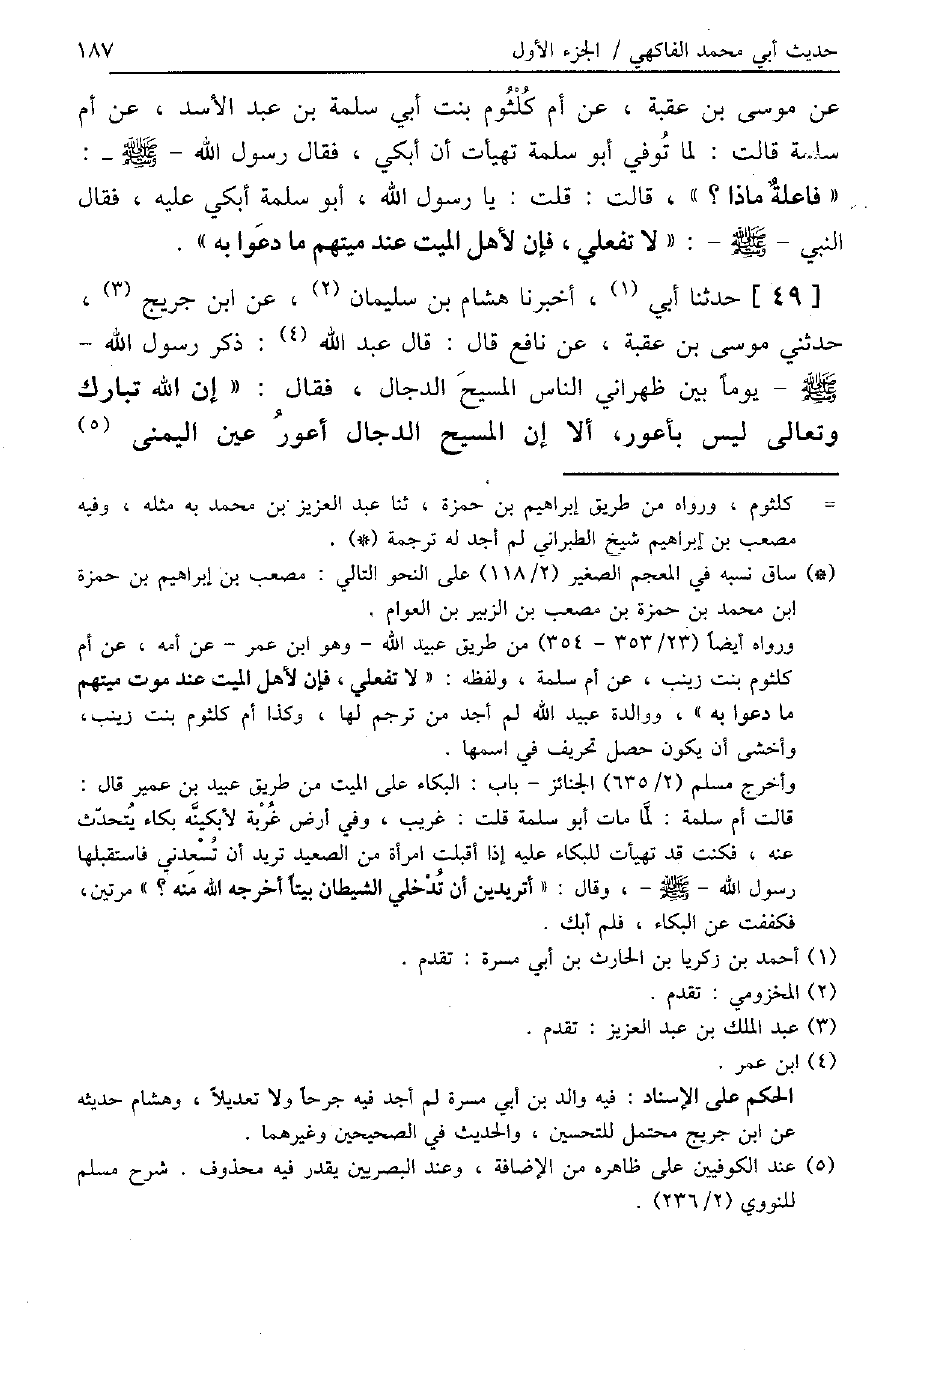 حديث أبي محمد الفاكهي / الجزء الأول ١٨٧
عن موسى بن عقبة ، عن أم كُلْثُوم بنت أبي سلمة بن عبد الأسد ، عن أم
سلمة قالت : لما تُوفي أبو سلمة تهيأت أن أبكي ، فقال رسول الله – ﷺ – :
« فاعلةٌ ماذا ؟ » ، قالت : قلت : يا رسول الله ، أبو سلمة أبكي عليه ، فقال
النبي – ﷺ – : « لا تفعلي ، فإن لأهل الميت عند ميتهم ما دعَوا به » .
[ ٤٩ ] حدثنا أبي (١) ، أخبرنا هشام بن سليمان (٢) ، عن ابن جريج (٣) ،
حدثني موسى بن عقبة ، عن نافع قال : قال عبد الله (٤) : ذكر رسول الله –
ﷺ – يوماً بين ظهراني الناس المسيحَ الدجال ، فقال : « إن الله تبارك
وتعالى ليس بأعور، ألا إن المسيح الدجال أعورُ عين اليمنى (٥)
= كلثوم ، ورواه من طريق إبراهيم بن حمزة ، ثنا عبد العزيز بن محمد به مثله ، وفيه
مصعب بن إبراهيم شيخ الطبراني لم أجد له ترجمة (*) .
(*) ساق نسبه في المعجم الصغير (١١٨/٢) على النحو التالي : مصعب بن إبراهيم بن حمزة
ابن محمد بن حمزة بن مصعب بن الزبير بن العوام .
ورواه أيضاً (٣٥٣/٢٣ – ٣٥٤) من طريق عبيد الله – وهو ابن عمر – عن أمه ، عن أم
كلثوم بنت زينب ، عن أم سلمة ، ولفظه : « لا تفعلي ، فإن لأهل الميت عند موت ميتهم
ما دعوا به » ، ووالدة عبيد الله لم أجد من ترجم لها ، وكذا أم كلثوم بنت زينب،
وأخشى أن يكون حصل تحريف في اسمها .
وأخرج مسلم (٦٣٥/٢) الجنائز – باب : البكاء على الميت من طريق عبيد بن عمير قال :
قالت أم سلمة : لمَّا مات أبو سلمة قلت : غريب ، وفي أرض غُرْبة لأبكينَّه بكاء يُتحدّث
عنه ، فكنت قد تهيأت للبكاء عليه إذا أقبلت امرأة من الصعيد تريد أن تُسْعدني فاستقبلها
رسول الله – ﷺ – ، وقال : « أتريدين أن تُدْخلي الشيطان بيتاً أخرجه الله منه ؟ » مرتين،
فكففت عن البكاء ، فلم أبك .
(١) أحمد بن زكريا بن الحارث بن أبي مسرة : تقدم .
(٢) المخزومي : تقدم .
(٣) عبد الملك بن عبد العزيز : تقدم .
(٤) ابن عمر .
الحكم على الإسناد : فيه والد بن أبي مسرة لم أجد فيه جرحاً ولا تعديلاً ، وهشام حديثه
عن ابن جريج محتمل للتحسين ، والحديث في الصحيحين وغيرهما .
(٥) عند الكوفيين على ظاهره من الإضافة ، وعند البصريين يقدر فيه محذوف . شرح مسلم
للنووي (٢٣٦/٢) .